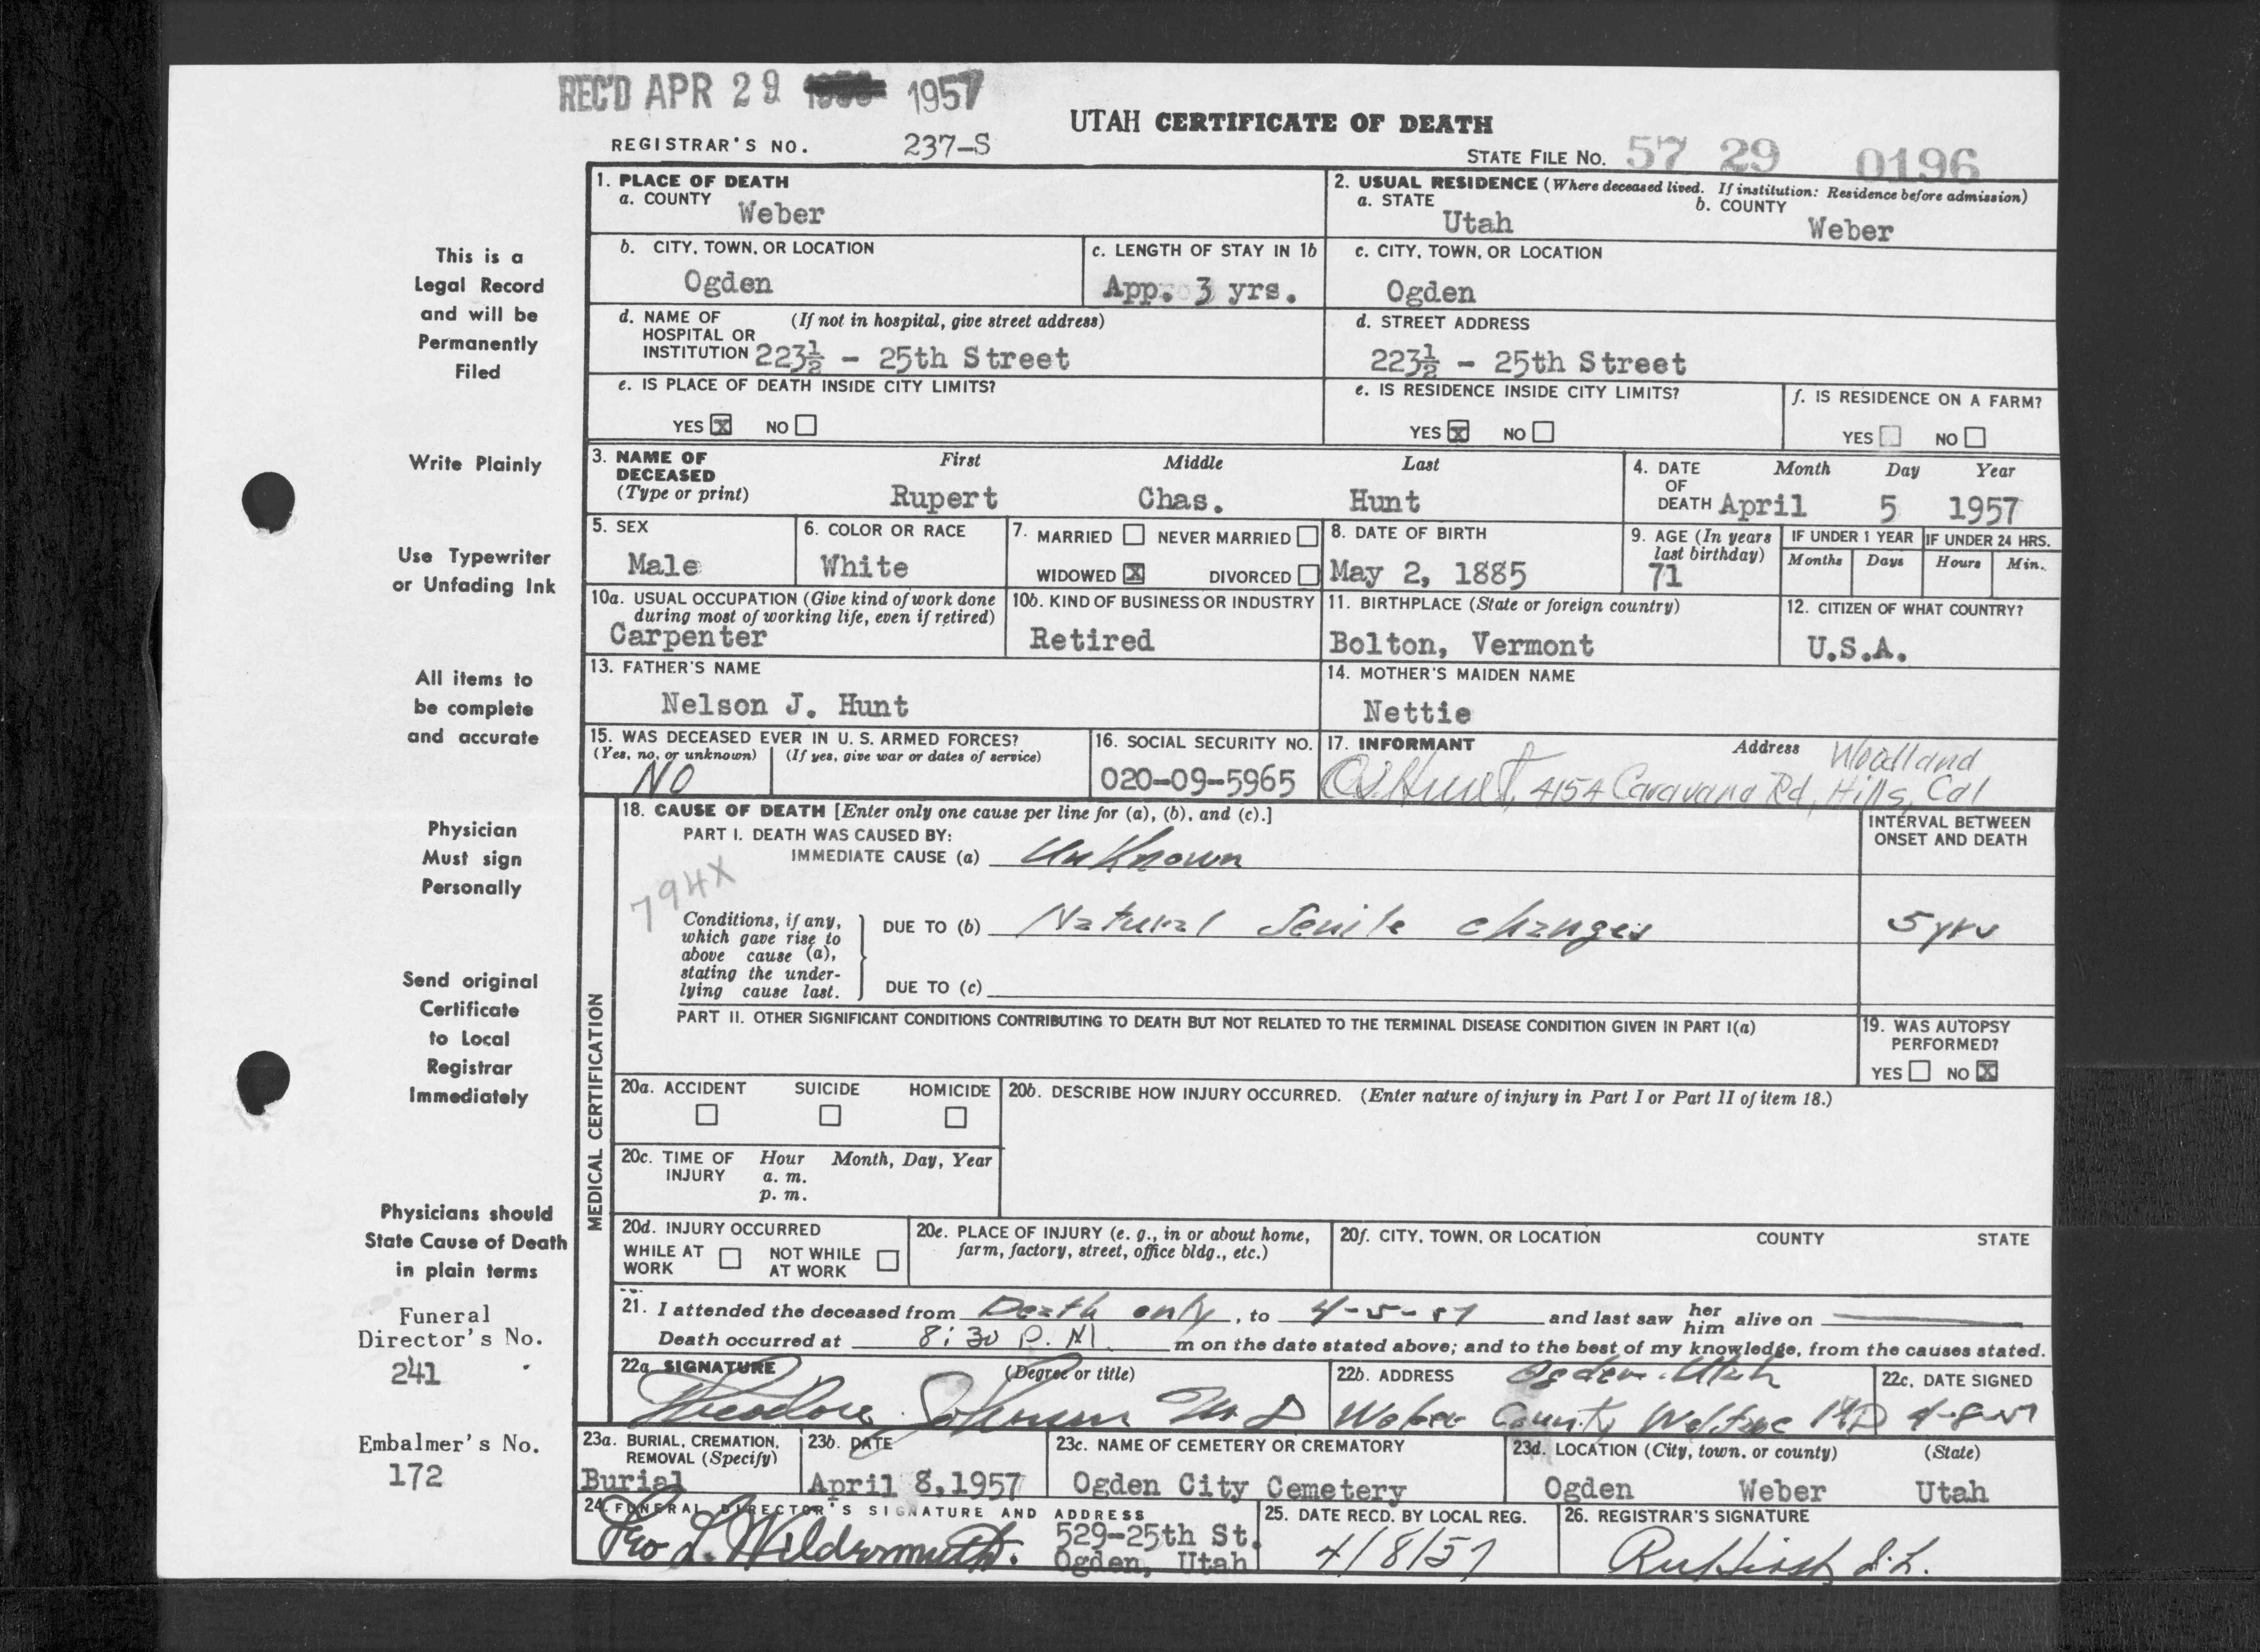 REC'D APR 29 1957
UTAH CERTIFICATE OF DEATH
REGISTRAR'S NO. 237-S
STATE FILE NO. 57 29 0196
This is a
Legal Record
and will be
Permanently
Filed
Write Plainly
Use Typewriter
or Unfading Ink
All items to
be complete
and accurate
Physician
Must sign
Personally
Send original
Certificate
to Local
Registrar
Immediately
Physicians should
State Cause of Death
in plain terms
Funeral
Director's No.
241
Embalmer's No.
172
1. PLACE OF DEATH
a. COUNTY Weber
2. USUAL RESIDENCE (Where deceased lived. If institution: Residence before admission)
a. STATE Utah b. COUNTY Weber
b. CITY, TOWN, OR LOCATION
Ogden
c. LENGTH OF STAY IN 1b
App. 3 yrs.
c. CITY, TOWN, OR LOCATION
Ogden
d. NAME OF (If not in hospital, give street address)
HOSPITAL OR
INSTITUTION 223½ - 25th Street
d. STREET ADDRESS
223½ - 25th Street
e. IS PLACE OF DEATH INSIDE CITY LIMITS?
YES X NO
e. IS RESIDENCE INSIDE CITY LIMITS?
YES X NO
f. IS RESIDENCE ON A FARM?
YES NO
3. NAME OF First Middle Last
DECEASED
(Type or print) Rupert Chas. Hunt
4. DATE Month Day Year
OF
DEATH April 5 1957
5. SEX
Male
6. COLOR OR RACE
White
7. MARRIED NEVER MARRIED
WIDOWED X DIVORCED
8. DATE OF BIRTH
May 2, 1885
9. AGE (In years
last birthday)
71
IF UNDER 1 YEAR
Months Days
IF UNDER 24 HRS.
Hours Min.
10a. USUAL OCCUPATION (Give kind of work done
during most of working life, even if retired)
Carpenter
10b. KIND OF BUSINESS OR INDUSTRY
Retired
11. BIRTHPLACE (State or foreign country)
Bolton, Vermont
12. CITIZEN OF WHAT COUNTRY?
U.S.A.
13. FATHER'S NAME
Nelson J. Hunt
14. MOTHER'S MAIDEN NAME
Nettie
15. WAS DECEASED EVER IN U. S. ARMED FORCES?
(Yes, no, or unknown) (If yes, give war or dates of service)
NO
16. SOCIAL SECURITY NO.
020-09-5965
17. INFORMANT Address Woodland
Hunt, 4154 Caravana Rd, Hills, Cal
MEDICAL CERTIFICATION
18. CAUSE OF DEATH [Enter only one cause per line for (a), (b), and (c).]
PART I. DEATH WAS CAUSED BY:
IMMEDIATE CAUSE (a) Unknown
INTERVAL BETWEEN
ONSET AND DEATH
794X
Conditions, if any,
which gave rise to
above cause (a),
stating the under-
lying cause last.
DUE TO (b) Natural Senile changes 5 yrs
DUE TO (c)
PART II. OTHER SIGNIFICANT CONDITIONS CONTRIBUTING TO DEATH BUT NOT RELATED TO THE TERMINAL DISEASE CONDITION GIVEN IN PART I(a)
19. WAS AUTOPSY
PERFORMED?
YES NO X
20a. ACCIDENT SUICIDE HOMICIDE
20b. DESCRIBE HOW INJURY OCCURRED. (Enter nature of injury in Part I or Part II of item 18.)
20c. TIME OF Hour Month, Day, Year
INJURY a. m.
p. m.
20d. INJURY OCCURRED
WHILE AT NOT WHILE
WORK AT WORK
20e. PLACE OF INJURY (e. g., in or about home,
farm, factory, street, office bldg., etc.)
20f. CITY, TOWN, OR LOCATION COUNTY STATE
21. I attended the deceased from Death only, to 4-5-57 and last saw her him alive on
Death occurred at 8:30 P.M. m on the date stated above; and to the best of my knowledge, from the causes stated.
22a. SIGNATURE (Degree or title)
Theodore Johnson MD
22b. ADDRESS Ogden, Utah
Weber County Welfare
22c. DATE SIGNED
4-8-57
23a. BURIAL, CREMATION,
REMOVAL (Specify)
Burial
23b. DATE
April 8, 1957
23c. NAME OF CEMETERY OR CREMATORY
Ogden City Cemetery
23d. LOCATION (City, town, or county) (State)
Ogden Weber Utah
24. FUNERAL DIRECTOR'S SIGNATURE AND ADDRESS
Geo L. Wildermuth.
529-25th St.
Ogden, Utah
25. DATE RECD. BY LOCAL REG.
4/8/57
26. REGISTRAR'S SIGNATURE